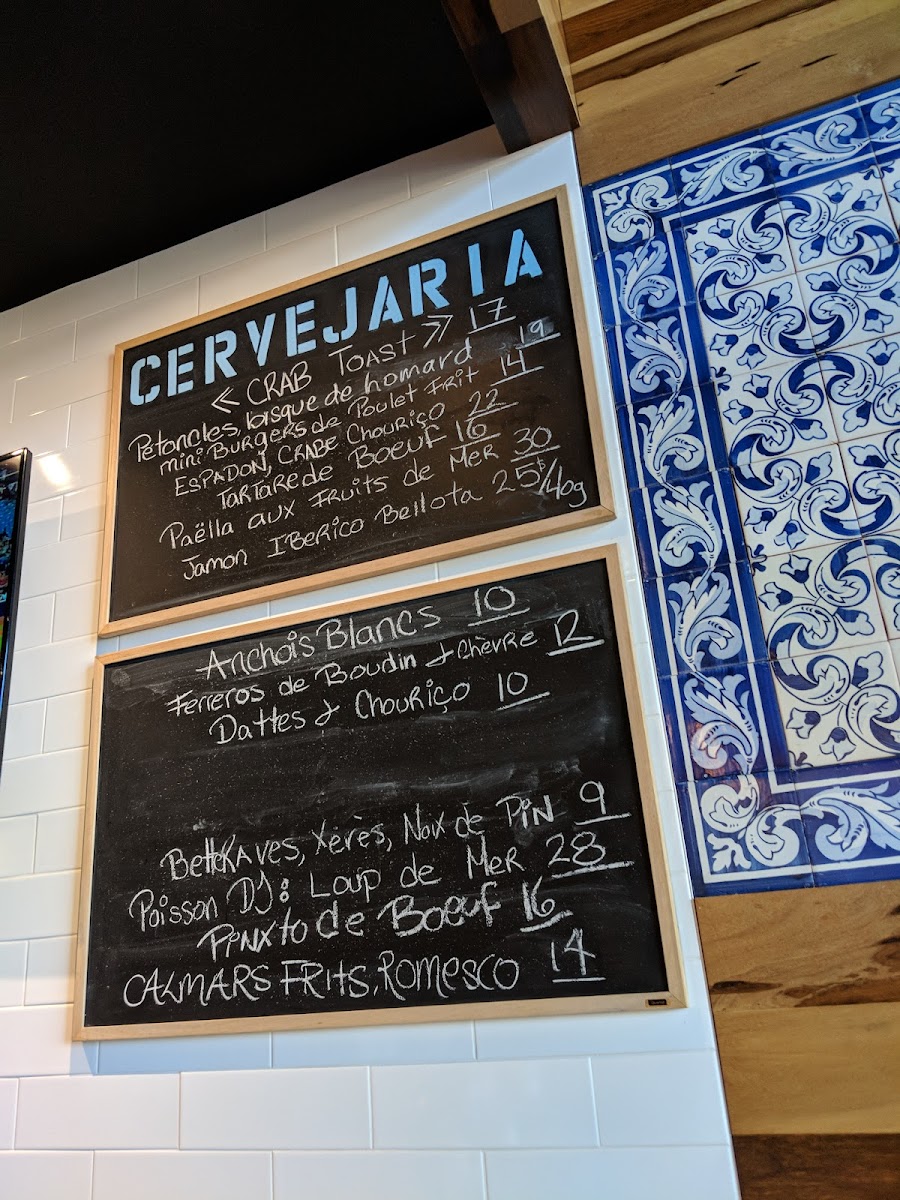 CERVEJARIA
« CRAB TOAST » 17
Petoncles, bisque de homard 19
mini BURGERS de Poulet FRIT 14
ESPADON, CRABE CHOURIÇO 22
TARTARE de BOEUF 16
Paëlla aux FRUITS de MER 30
Jamon IBERICO Bellota 25$/40g
Anchois Blancs 10
Ferreros de Boudin & Chèvre 12
Dattes & Chouriço 10
BetteRAVES, Xérès, Noix de PIN 9
Poisson DJ: Loup de Mer 28
PINXto de Boeuf 16
CALMARS FRITS, ROMESCO 14